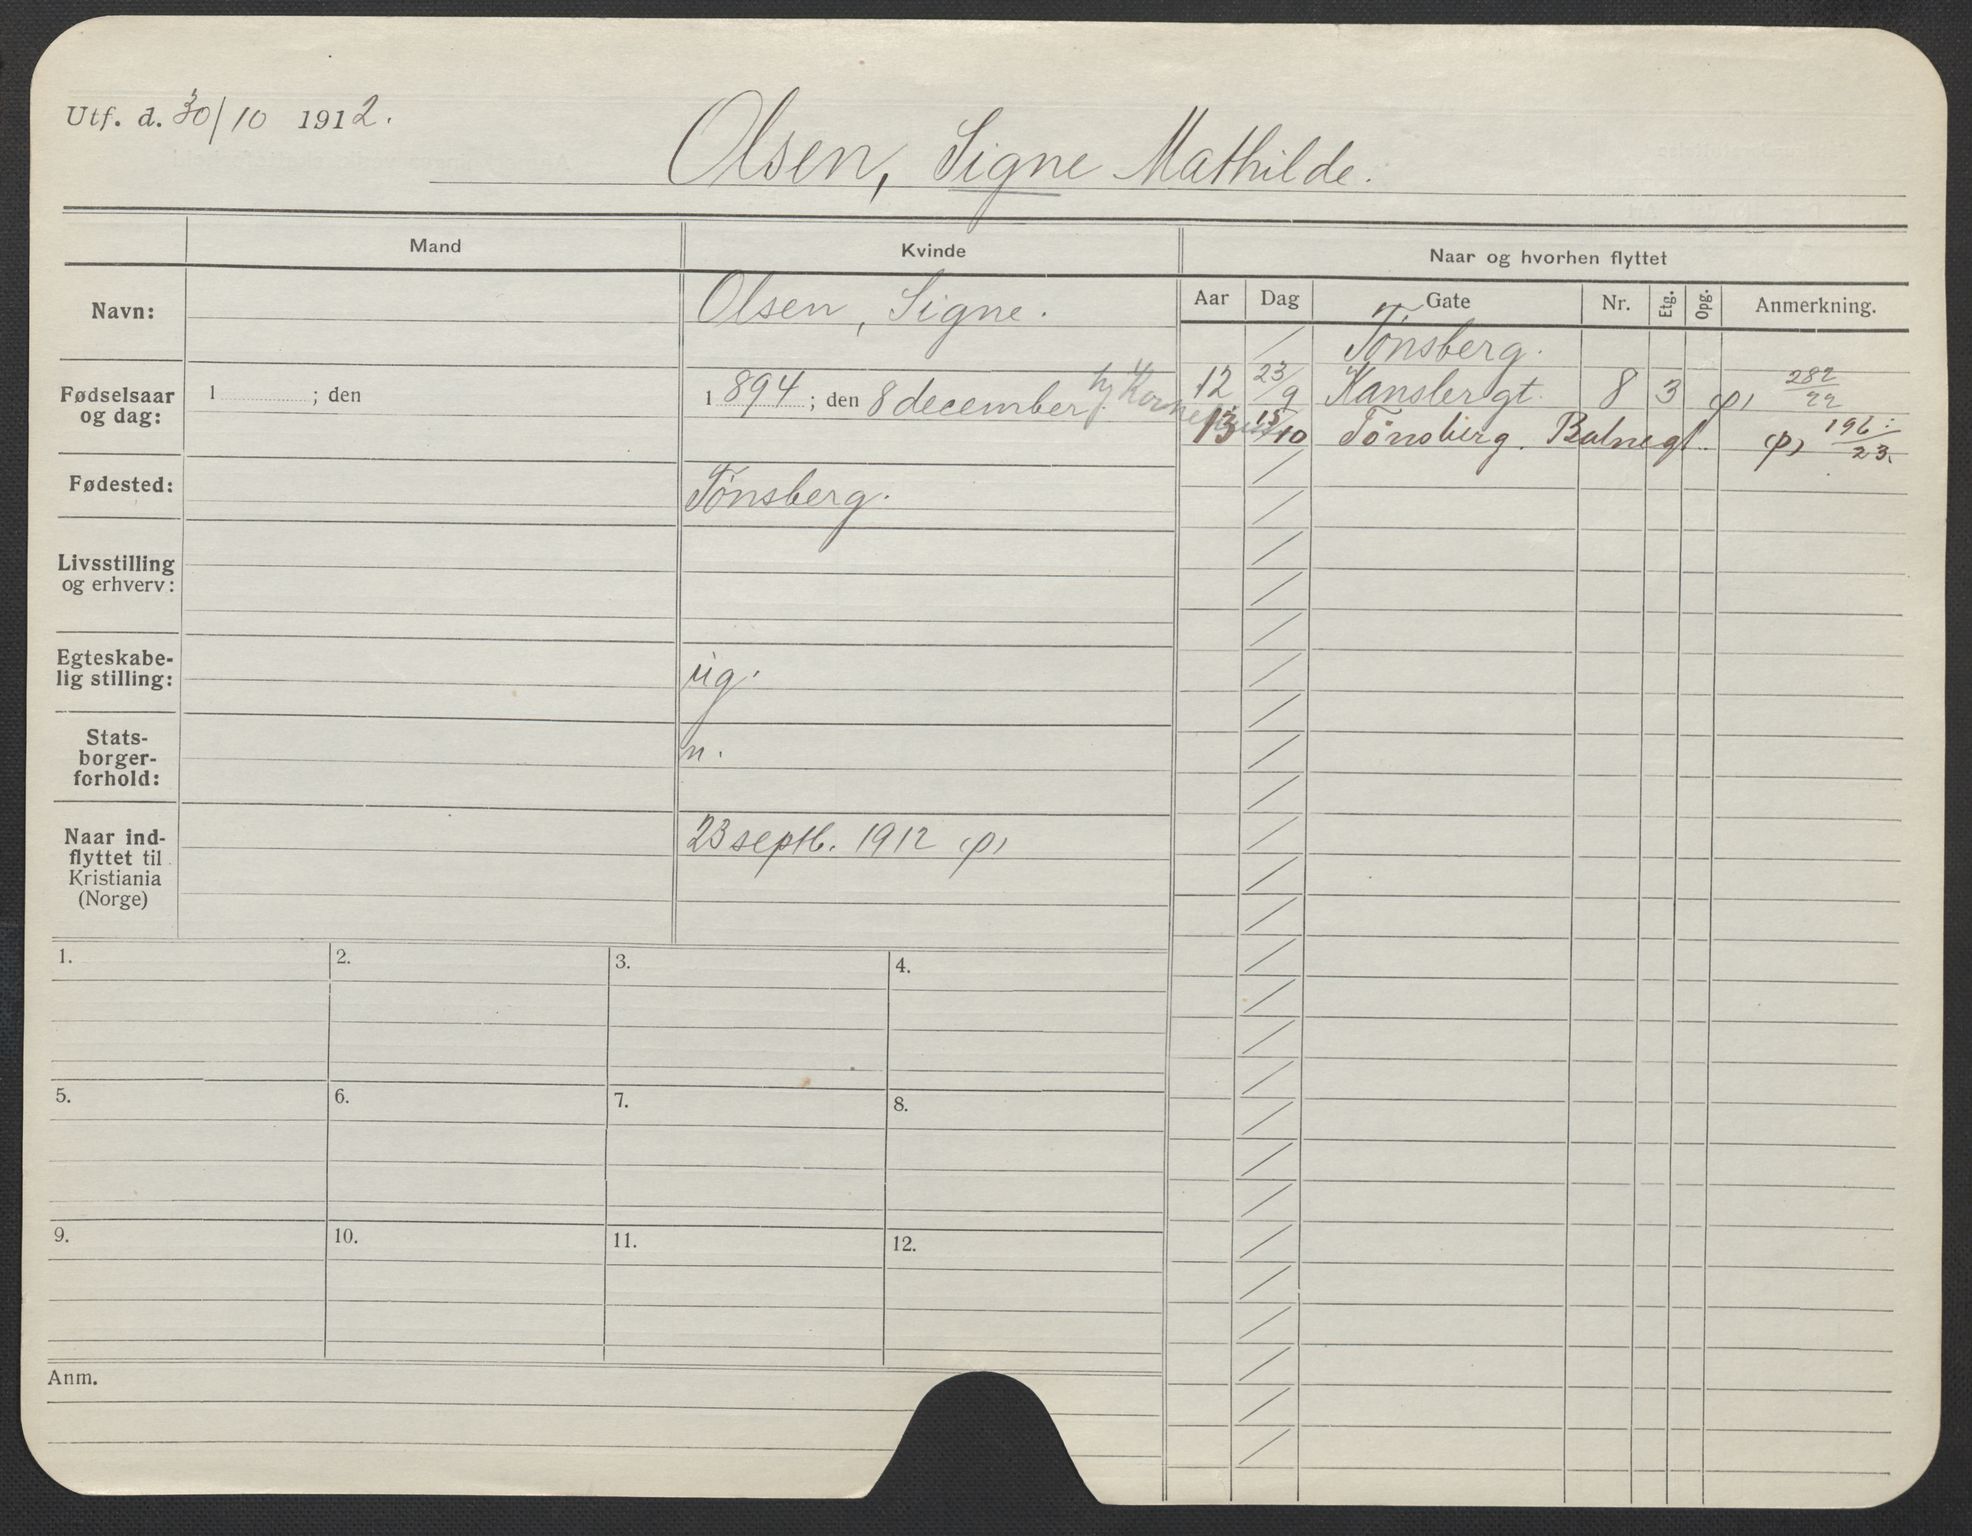 Utf. d. 30/10 1912.
Olsen, Signe Mathilde.
Mand
Kvinde
Naar og hvorhen flyttet
Navn:
Olsen, Signe.
Aar Dag Gate Nr. Etg. Opg. Anmerkning.
Tönsberg.
Fødselsaar
og dag:
1 ; den
1894 ; den 8 december
12 23/9 Kanslergt. 8 3 (p) 282/22
13 15/10 Tönsberg. (p) 196:/23.
Fødested:
Tönsberg.
Livsstilling
og erhverv:
Egteskabe-
lig stilling:
ug.
Stats-
borger-
forhold:
n.
Naar ind-
flyttet til
Kristiania
(Norge)
23 septb. 1912 (p)
1. 2. 3. 4.
5. 6. 7. 8.
9. 10. 11. 12.
Anm.